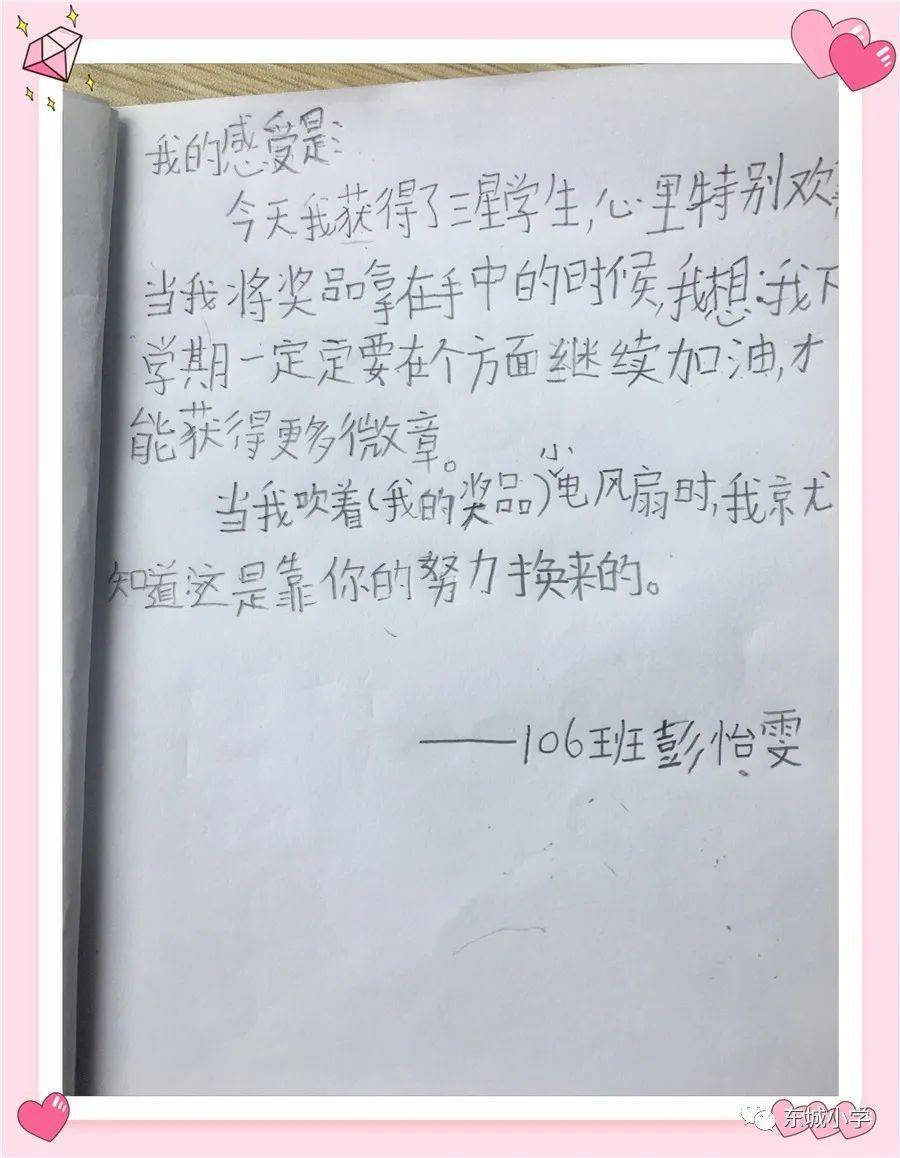 我的感受是:
今天我获得了三星学生,心里特别欢
当我将奖品拿在手中的时候,我想:我下
学期一定定要在个方面继续加油,才
能获得更多微章。
当我吹着(我的奖品)小电风扇时,我京尤
知道这是靠你的努力换来的。
——106班彭怡雯
东城小学